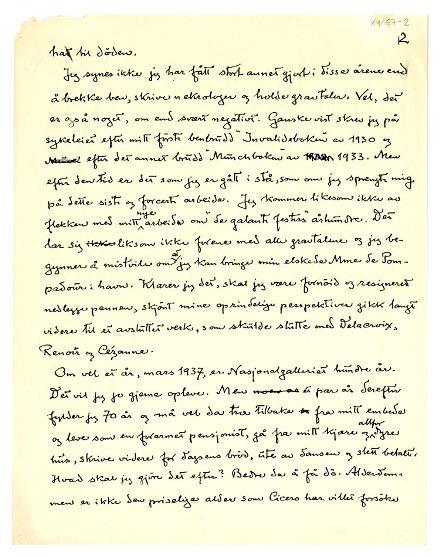 K4167-2
2
hat til döden.
Jeg synes ikke jeg har fått stort annet gjort i disse årene end
å brekke ben, skrive nekrologer og holde gravtaler. Vel, det
er også noget, om end svært negativt. Ganske vist skrev jeg på
sykeleiet efter mitt förste benbrudd "Invalideboken" av 1930 og
efter det annet brudd "Munchboken" av 1933. Men
efter den tid er det som jeg er gått i stå, som om jeg sprengte mig
på dette siste og forcerte arbeide. Jeg kommer liksom ikke av
flekken med mitt nye arbeide om "de galante festers" århundre. Det
lar sig liksom ikke forene med alle gravtalene og jeg be-
gynner å mistvile om at jeg kan bringe min elskede Mme de Pom-
padour i havn. Klarer jeg det, skal jeg være fornöid og resignert
nedlegge pennen, skjönt mine oprindelige perspektiver gikk langt
videre til et avsluttet verk, som skulde slutte med Delacroix,
Renoir og Cézanne.
Om vel et år, mars 1937, er Nasjonalgalleriet hundre år.
Det vil jeg jo gjerne opleve. Men et par år derefter
fyller jeg 70 år og må vel da tre tilbake fra mitt embede
og leve som en forarmet pensjonist, gå fra mitt kjære og altfor dyre
hus, skrive videre for dagens bröd, ute av dansen og slett betalt.
Hvad skal jeg gjöre det efter? Bedre da å få dö. Alderdom-
men er ikke den priselige alder som Cicero har villet forsöke